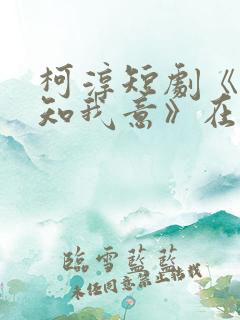 柯淳短劇《
知我意》在
臨雪藍藍
未經同意禁止轉載